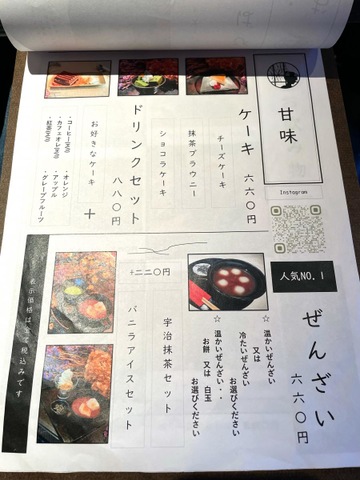 甘味
Instagram
ケーキ 六六〇円
チーズケーキ
抹茶ブラウニー
ショコラケーキ
ドリンクセット 八八〇円
お好きなケーキ +
・コーヒー
・カフェオレ
・紅茶
・オレンジ
・アップル
・グレープフルーツ
人気NO.1
ぜんざい 六六〇円
☆ 温かいぜんざい
又は
冷たいぜんざい
お選びください
☆ 温かいぜんざい・・
お餅 又は 白玉
お選びください
+二二〇円
宇治抹茶セット
バニラアイスセット
表示価格は全て税込みです